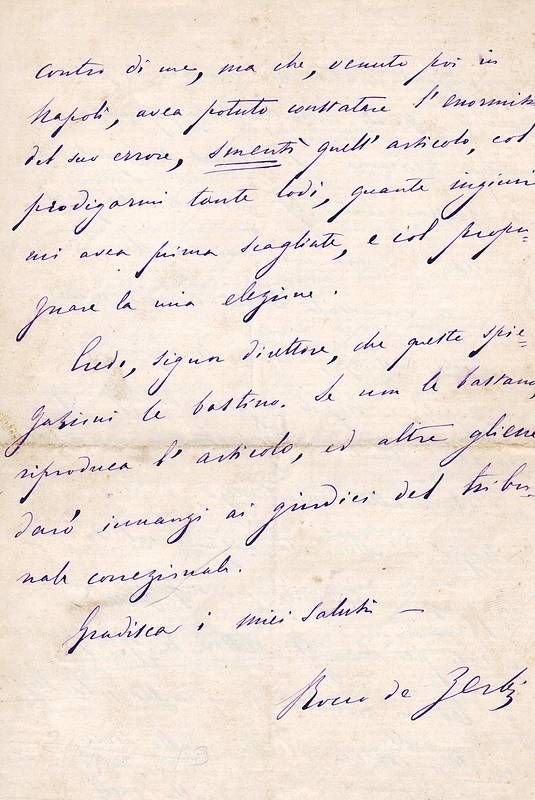 contro di me, ma che, venuto poi in
Napoli, avea potuto constatare l'enormità
del suo errore, smentì quell'articolo, col
prodigarmi tante lodi, quante ingiurie
mi avea prima scagliate, e col propu-
gnare la mia elezione.
Credo, signor direttore, che queste spie-
gazioni le bastino. Se non le bastano,
riproduca l'articolo, ed altre gliene
darò innanzi ai giudici del tribu-
nale correzionale.
Gradisca i miei saluti —
Rocco de Zerbi